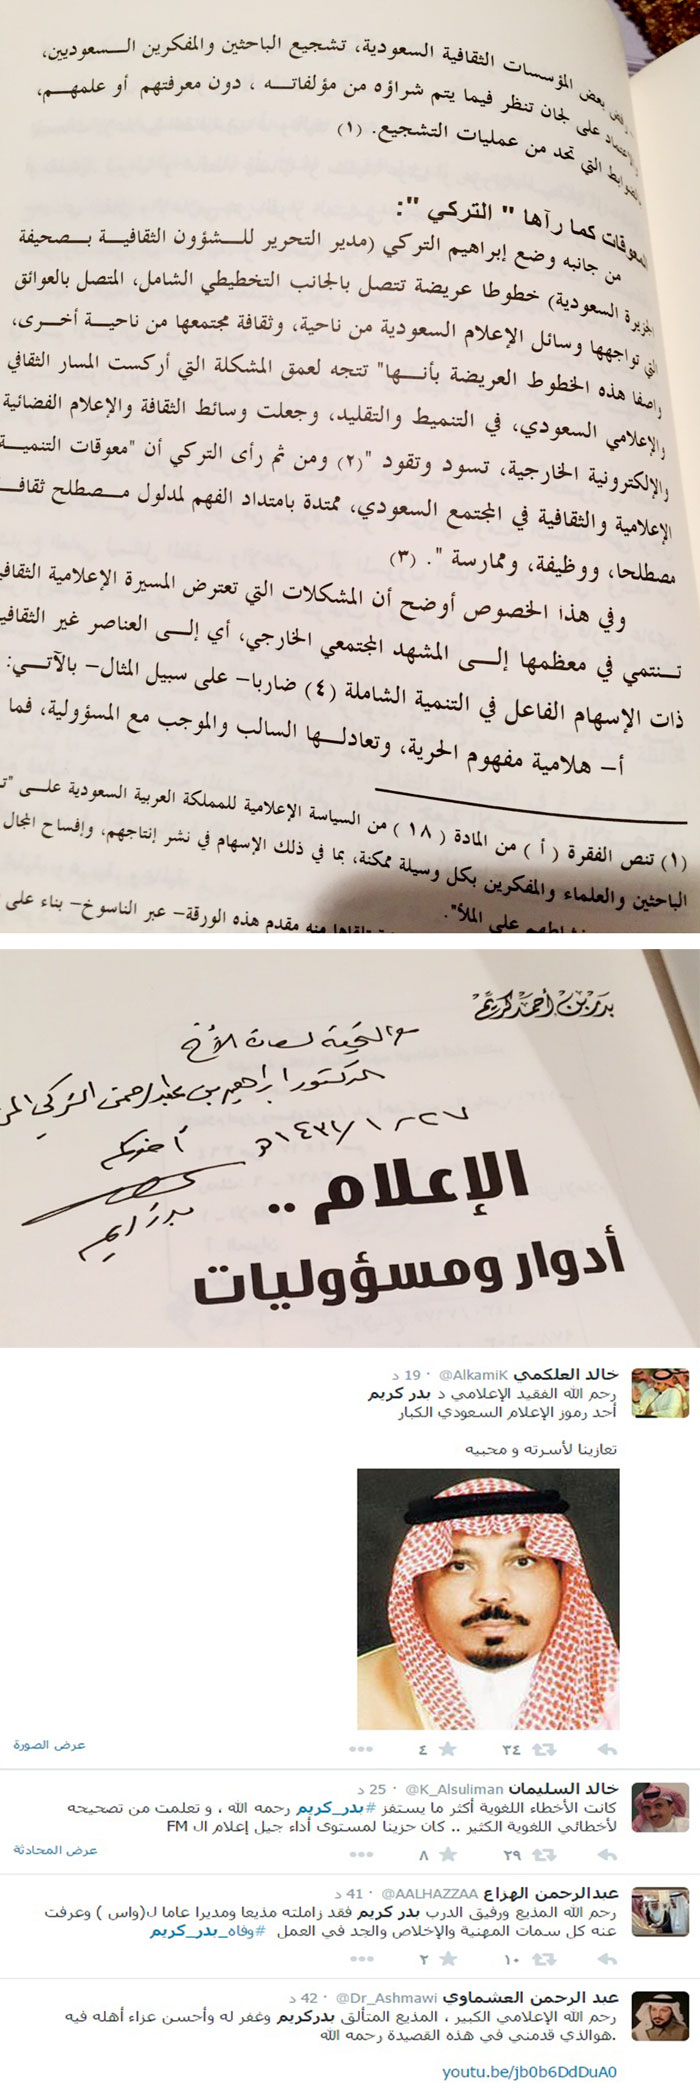 رفض بعض المؤسسات الثقافية السعودية، تشجيع الباحثين والمفكرين السعوديين،
والاعتماد على لجان تنظر فيما يتم شراؤه من مؤلفاته ، دون معرفتهم أو علمهم،
والضوابط التي تحد من عمليات التشجيع. (١)
المعوقات كما رآها " التركي ":
من جانبه وضع إبراهيم التركي (مدير التحرير للشؤون الثقافية بصحيفة
الجزيرة السعودية) خطوطا عريضة تتصل بالجانب التخطيطي الشامل، المتصل بالعوائق
التي تواجهها وسائل الإعلام السعودية من ناحية، وثقافة مجتمعها من ناحية أخرى،
واصفا هذه الخطوط العريضة بأنها" تتجه لعمق المشكلة التي أركست المسار الثقافي
والإعلامي السعودي، في التنميط والتقليد، وجعلت وسائط الثقافة والإعلام الفضائية
والإلكترونية الخارجية، تسود وتقود "(٢) ومن ثم رأى التركي أن "معوقات التنمية
الإعلامية والثقافية في المجتمع السعودي، ممتدة بامتداد الفهم لمدلول مصطلح ثقافـ
مصطلحا، ووظيفة، وممارسة ". (٣)
وفي هذا الخصوص أوضح أن المشكلات التي تعترض المسيرة الإعلامية الثقافيـ
تنتمي في معظمها إلى المشهد المجتمعي الخارجي، أي إلى العناصر غير الثقافيـ
ذات الإسهام الفاعل في التنمية الشاملة (٤) ضاربا- على سبيل المثال- بالآتي:
أ- هلامية مفهوم الحرية، وتعادلها السالب والموجب مع المسؤولية، فما
(١) تنص الفقرة ( أ ) من المادة ( ١٨ ) من السياسة الإعلامية للمملكة العربية السعودية على "تـ
الباحثين والعلماء والمفكرين بكل وسيلة ممكنة، بما في ذلك الإسهام في نشر إنتاجهم، وإفساح المجال
نشاطهم على الملأ".
تلقاها منه مقدم هذه الورقة- عبر الناسوخ- بناء على
بدر بن أحمد كريم
مع التحية لسعادة الأخ
الدكتور ابراهيم بن عبدالرحمن التركي
٢٧-١٠/١٤٣١هـ
أخوكم
بدر كريم
الإعلام ..
أدوار ومسؤوليات
خالد العلكمي @AlkamiK · 19 د
رحم الله الفقيد الإعلامي د بدر كريم
أحد رموز الإعلام السعودي الكبار
تعازينا لأسرته و محبيه
٣٤ ٤ عرض الصورة
خالد السليمان @K_Alsuliman · 25 د
كانت الأخطاء اللغوية أكثر ما يستفز #بدر_كريم رحمه الله ، و تعلمت من تصحيحه
لأخطائي اللغوية الكثير .. كان حزينا لمستوى أداء جيل إعلام ال FM
٢٩ ٨ عرض المحادثة
عبدالرحمن الهزاع @AALHAZZAA · 41 د
رحم الله المذيع ورفيق الدرب بدر كريم فقد زاملته مذيعا ومديرا عاما ل(واس ) وعرفت
عنه كل سمات المهنية والإخلاص والجد في العمل #وفاه_بدر_كريم
١٠ ٢
عبد الرحمن العشماوي @Dr_Ashmawi · 42 د
رحم الله الإعلامي الكبير ، المذيع المتألق بدركريم وغفر له وأحسن عزاء أهله فيه
.هوالذي قدمني في هذه القصيدة رحمه الله
youtu.be/jb0b6DdDuA0